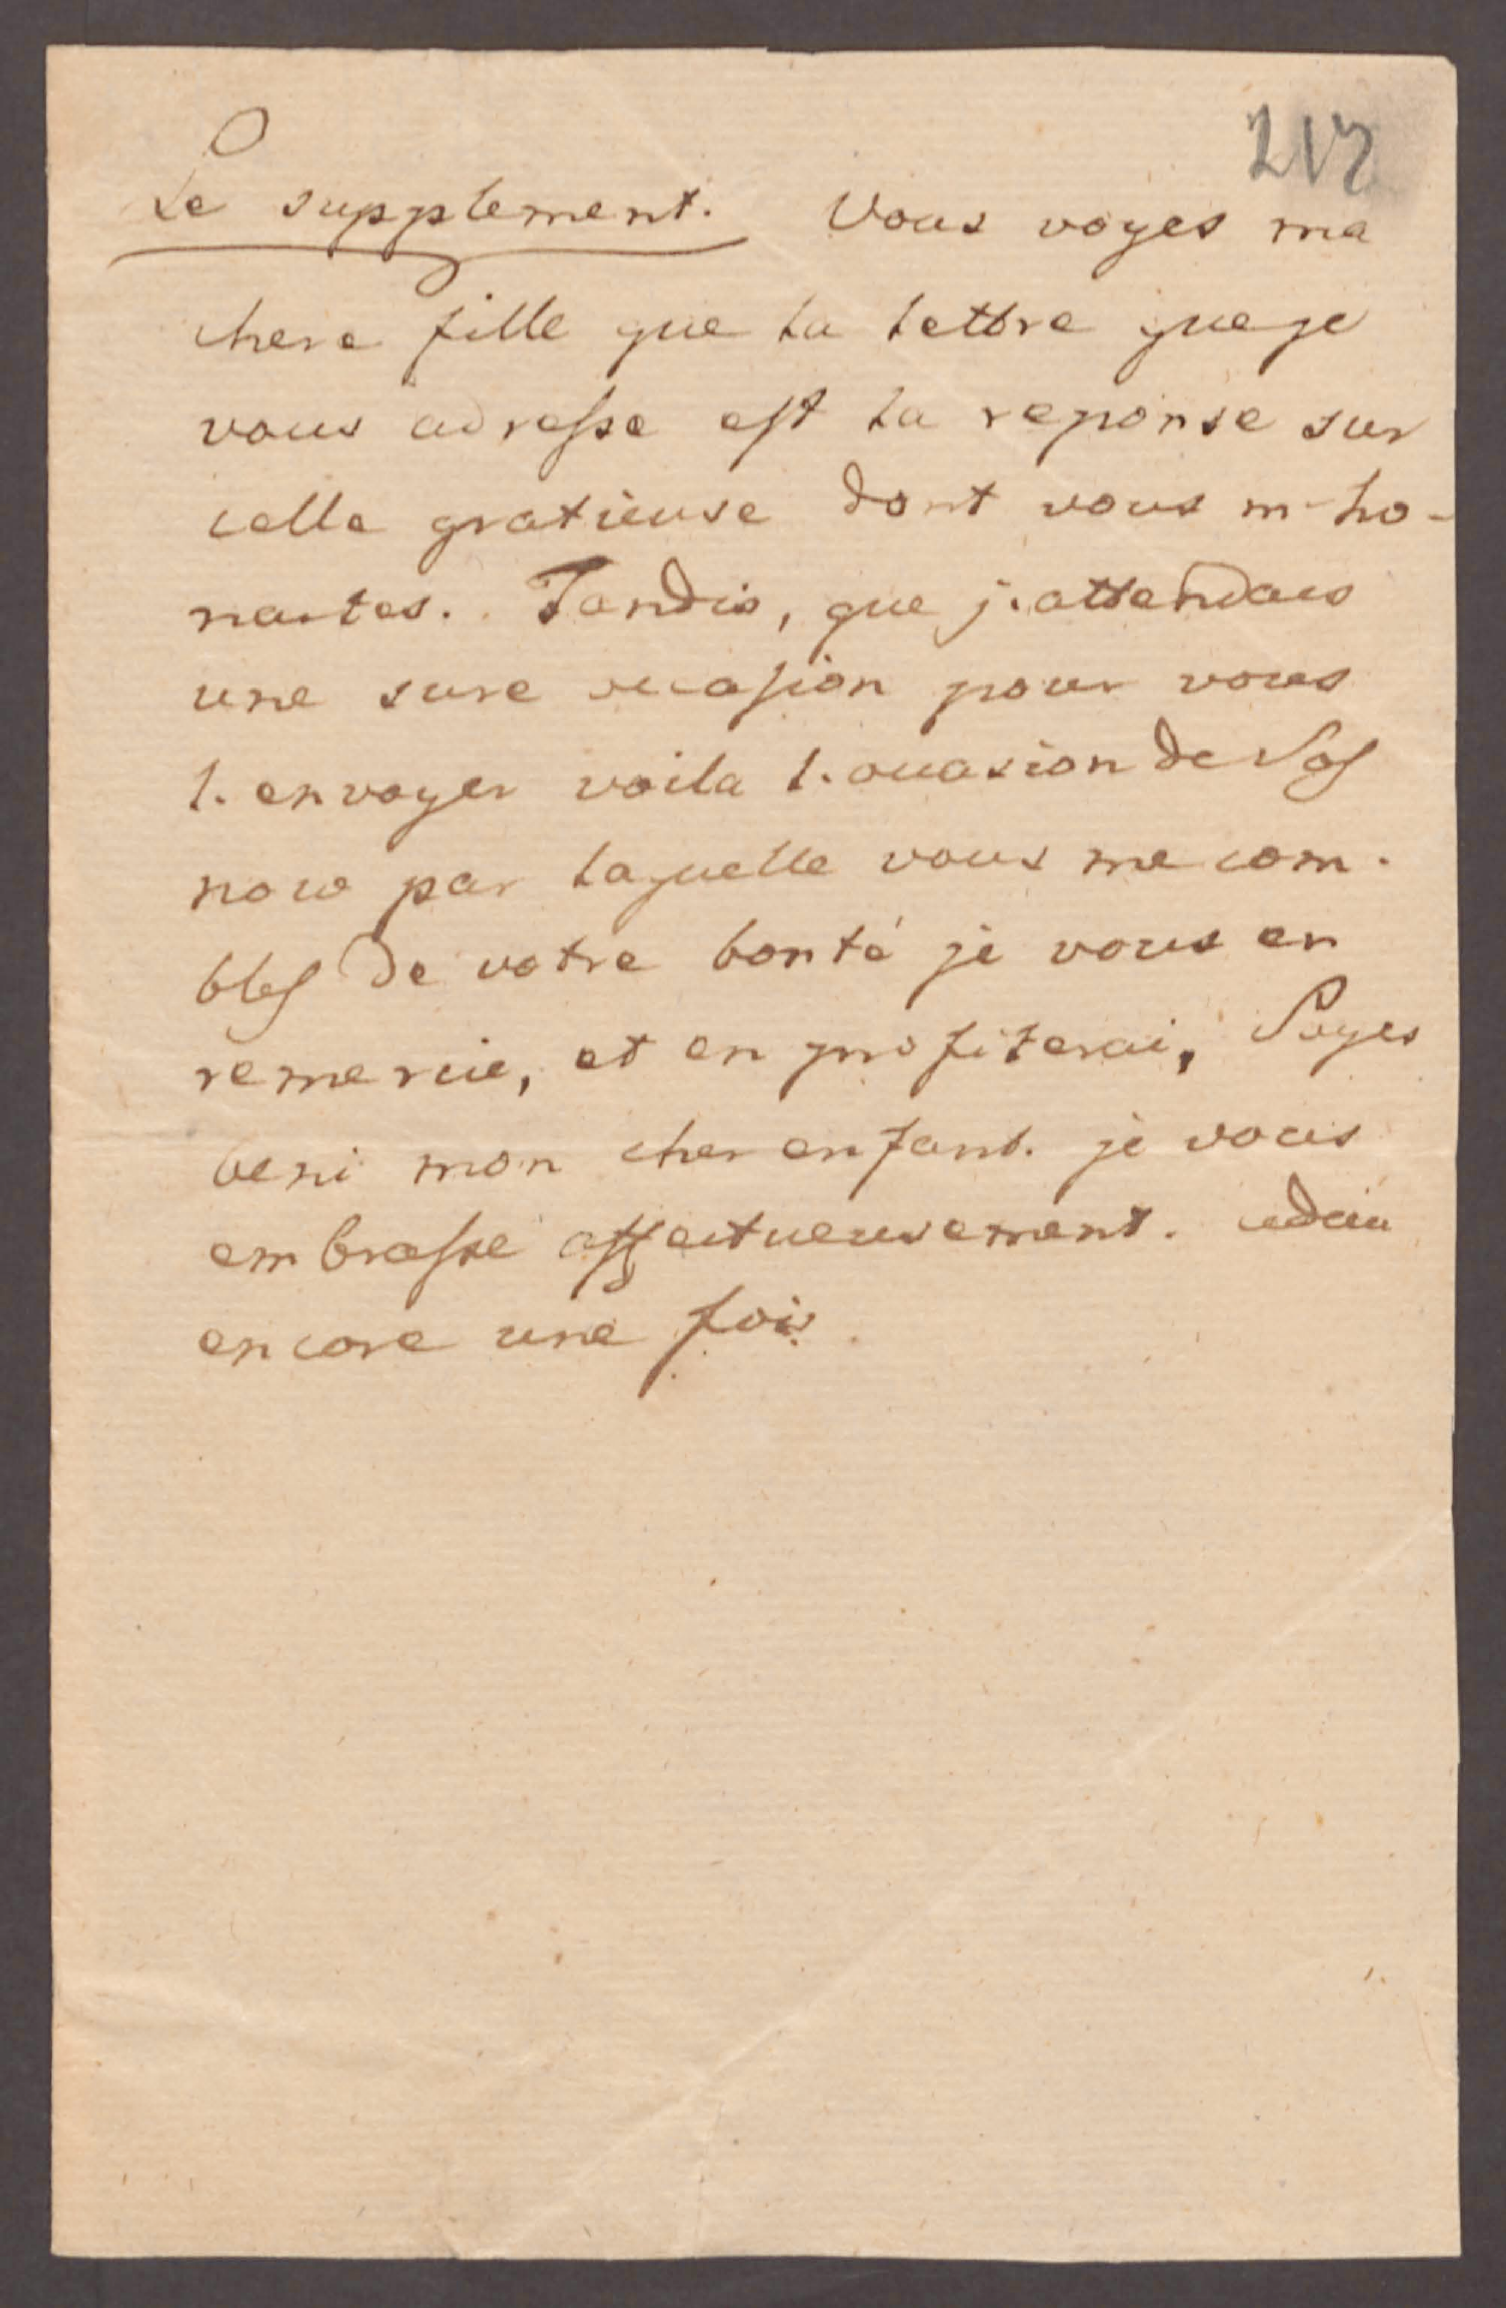 217
Le supplement. Vous voyes ma
chere fille que la lettre que je
vous adresse est la reponse sur
celle gratieuse dont vous m-ho-
nartes. Tandis, que j.attendais
une sure occasion pour vous
l.envoyer voila l.occasion de Sos
now par laquelle vous me com-
bles de votre bonté je vous en
remercie, et en profiterai, Soyes
beni mon cher enfant. je vous
embrasse affectueusement. adieu
encore une fois